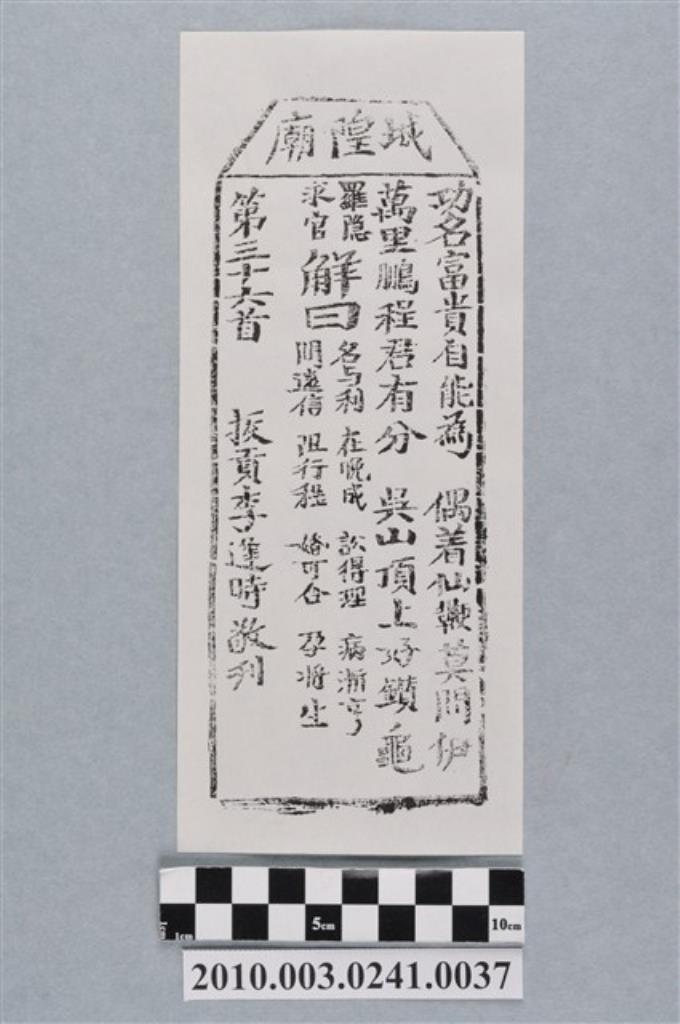 城隍廟
功名富貴自能為　偶着仙鞭莫問伊
萬里鵬程君有分　吳山頂上好鑽龜
羅隱
求官
解曰
名与利　在晚成　訟得理　病漸亨
問遠信　阻行程　婚可合　孕将生
第三十六首　拔貢李逢時敬刊
5cm
10cm
1cm
2010.003.0241.0037